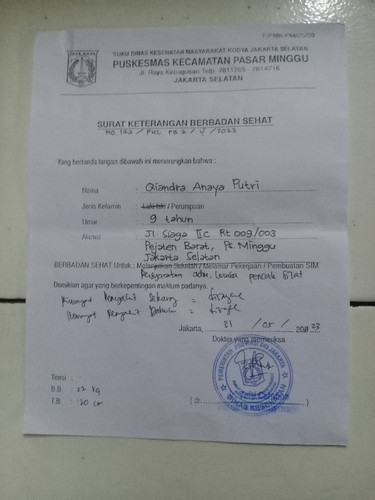 SUKU DINAS KESEHATAN MASYARAKAT KODYA JAKARTA SELATAN
PUSKESMAS KECAMATAN PASAR MINGGU
Jl. Raya Kebagusan Telp. 7811265 - 7814716
JAKARTA SELATAN
SURAT KETERANGAN BERBADAN SEHAT
Yang bertanda tangan dibawah ini menerangkan bahwa :
Nama : Qiandra Anaya Putri
Jenis Kelamin : Laki-laki / Perempuan
Umur : 9 tahun
Alamat : Jl. Siaga II C Rt 009/003
Pejaten Barat, Ps. Minggu
Jakarta Selatan
BERBADAN SEHAT Untuk : Melanjutkan Sekolah / Melamar Pekerjaan / Pembuatan SIM
Persyaratan lomba pencak silat
Demikian agar yang berkepentingan maklum padanya.
Riwayat Penyakit Sekarang =
Riwayat Penyakit =
Jakarta, 21 / 05 / 2023
Dokter yang memeriksa
Tensi : -
B.B. : 22 kg
T.B. : 120 cm